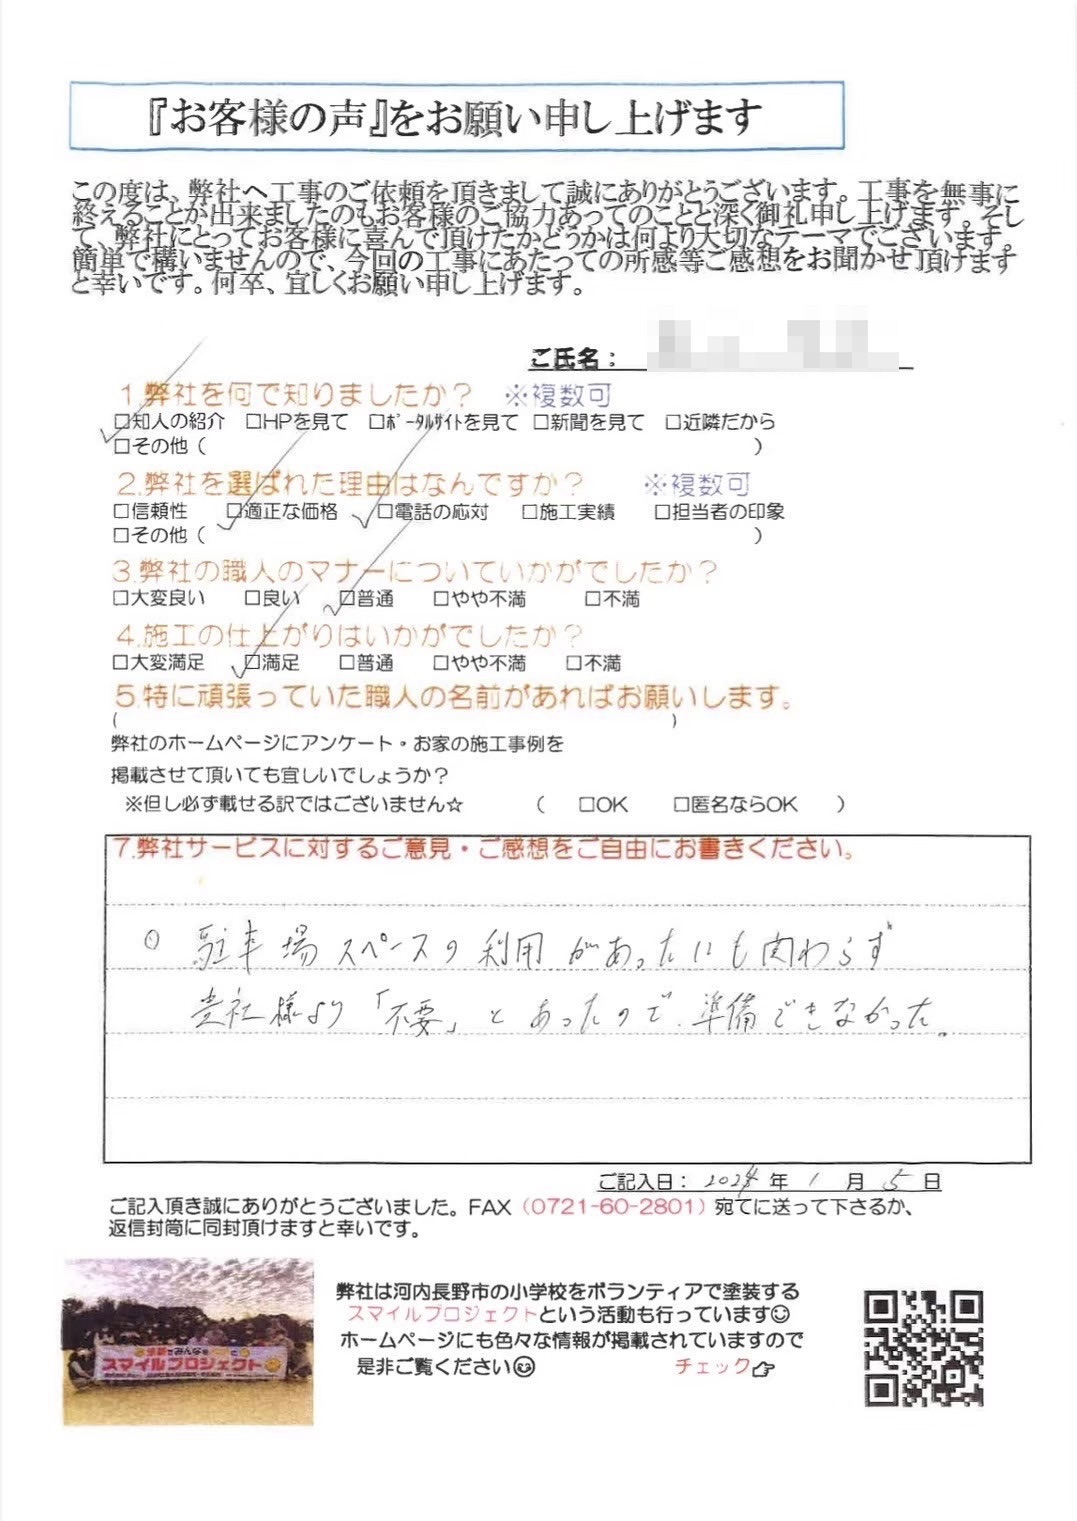 『お客様の声』をお願い申し上げます
この度は、弊社へ工事のご依頼を頂きまして誠にありがとうございます。工事を無事に
終えることが出来ましたのもお客様のご協力あってのことと深く御礼申し上げます。そし
て、弊社にとってお客様に喜んで頂けたかどうかは何より大切なテーマでございます。
簡単で構いませんので、今回の工事にあたっての所感等ご感想をお聞かせ頂けます
と幸いです。何卒、宜しくお願い申し上げます。
ご氏名：
1.弊社を何で知りましたか？ ※複数可
□知人の紹介 □HPを見て □ﾎﾟｰﾀﾙｻｲﾄを見て □新聞を見て □近隣だから
□その他（ ）
2.弊社を選ばれた理由はなんですか？ ※複数可
□信頼性 □適正な価格 □電話の応対 □施工実績 □担当者の印象
□その他（ ）
3.弊社の職人のマナーについていかがでしたか？
□大変良い □良い □普通 □やや不満 □不満
4.施工の仕上がりはいかがでしたか？
□大変満足 □満足 □普通 □やや不満 □不満
5.特に頑張っていた職人の名前があればお願いします。
（ ）
弊社のホームページにアンケート・お家の施工事例を
掲載させて頂いても宜しいでしょうか？
※但し必ず載せる訳ではございません☆ （ □OK □匿名ならOK ）
7.弊社サービスに対するご意見・ご感想をご自由にお書きください。
○ 駐車場スペースの利用があったにも関わらず
貴社様より「不要」とあったので、準備できなかった。
ご記入日： 2024 年 1 月 5 日
ご記入頂き誠にありがとうございました。FAX（0721-60-2801）宛てに送って下さるか、
返信封筒に同封頂けますと幸いです。
スマイルプロジェクト
弊社は河内長野市の小学校をボランティアで塗装する
スマイルプロジェクトという活動も行っています☺
ホームページにも色々な情報が掲載されていますので
是非ご覧ください😊 チェック👉